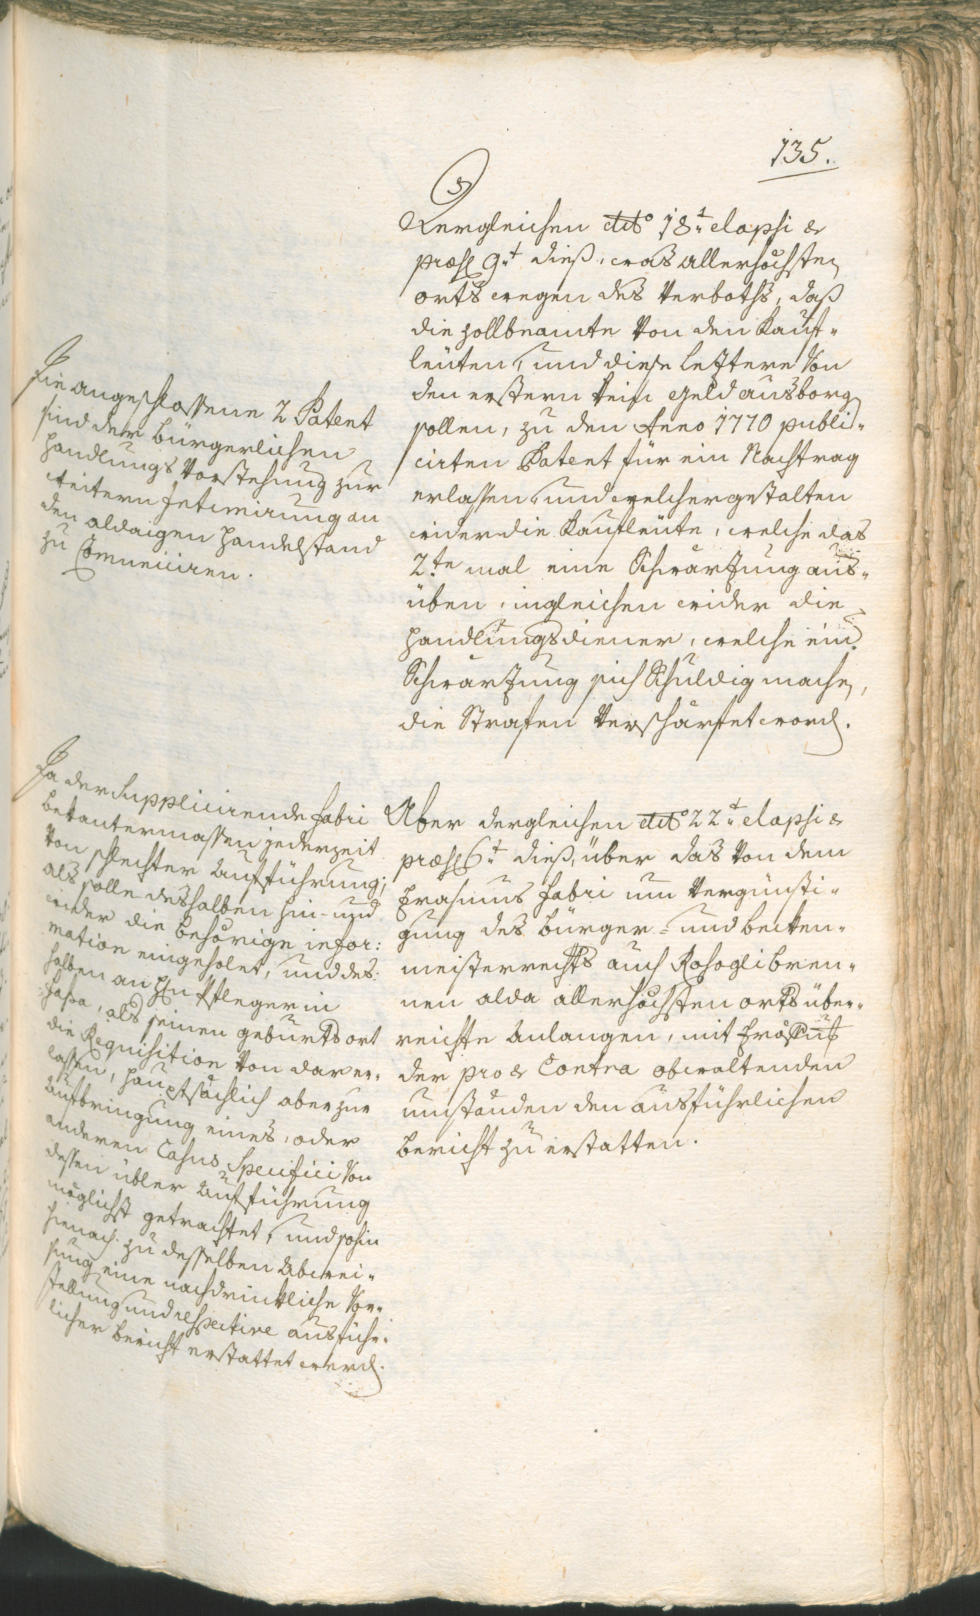 135.
Dergleichen dtto 18.t elapsi &
præs: 9.t dieß, was allerhöchsten
orts wegen des Verboths, daß
die zollbeamte von den Kauf-
leüten, und diese leztere von
den erstern kein geld ausborgen
sollen, zu den Anno 1770 publi-
cirten Patent für ein Nachtrag
erlassen, und welchergestalten
wider die Kaufleüte, welche das
2.te mal eine Schwärzung aus-
üben, ingleichen wider die
handlungsdiener, welche einer
Schwärzung sich schuldig machen,
die Strafen verschärfet word.
Die angeschlossene 2 Patent
sind der bürgerlichen
handlungs Vorstehung zur
weitern Intimirung an
den aldaigen Handelstand
zu Comuniciren.
Aber dergleichen dtto 22.t elapsi &
præs: 6.t dieß, über das von dem
Erasmus Fabri um Vergünsti-
gung des bürger- und becken-
meisterrechts auch Rosoglibren-
nen alda allerhöchsten orts über-
reichte Anlangen, mit
der pro & Contra obwaltenden
umständen den ausführlichen
bericht zu erstatten.
Da der Supplicirende Fabri
bekantermassen jederzeit
von schlechter Aufführung;
als solle deshalben hin- und
wider die behörige infor:
mation eingeholet, und des-
halben an Hn Pfleger in
als seinen geburtsort
die Requisition von dar er-
lassen, hauptsächlich aber zur
Aufbringung eines, oder
anderen Casus Specifici von
dessen übler Aufführung
möglichst getrachtet, und sohin
hienach zu desselben Abwei-
sung eine nachdrückliche Vor-
stellung und respective ausführ-
licher bericht erstattet werd.